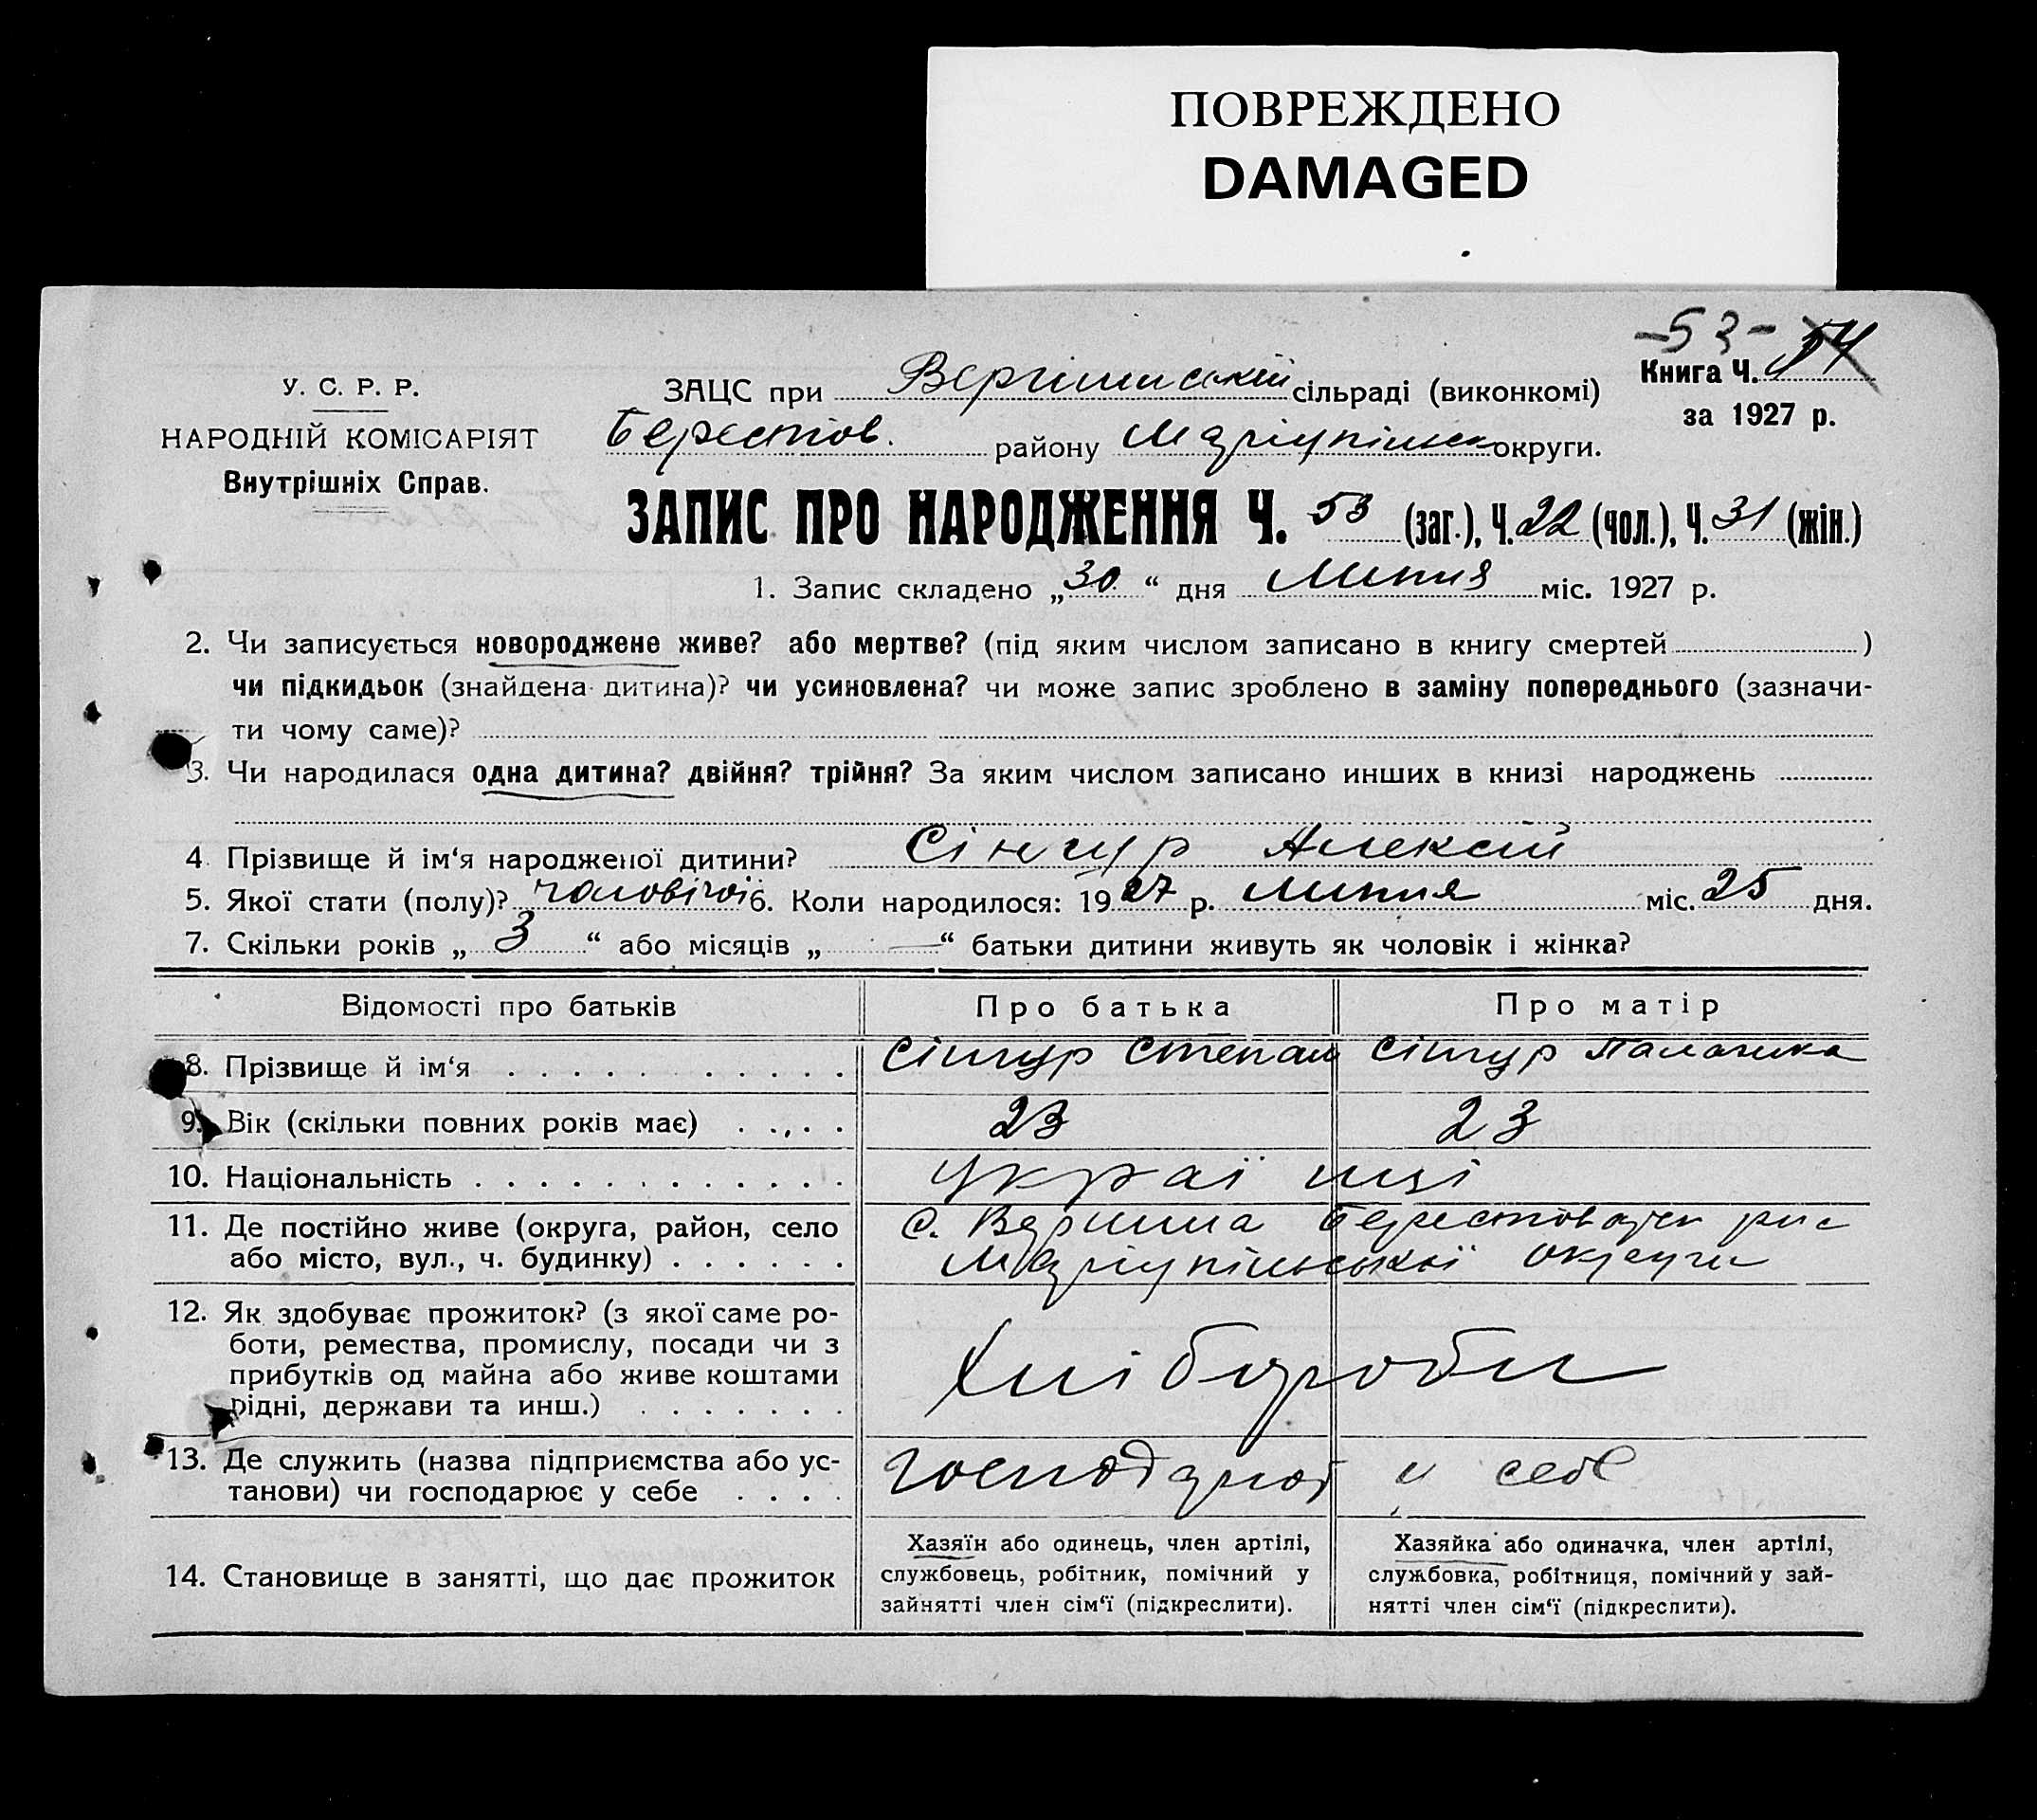 ПОВРЕЖДЕНО
DAMAGED
-53- 54
Книга Ч.
за 1927 р.
У. С. Р. Р.
НАРОДНІЙ КОМІСАРІЯТ
Внутрішніх Справ.
ЗАЦС при сільраді (виконкомі)
Берестов. району Маріупільськ округи.
ЗАПИС ПРО НАРОДЖЕННЯ Ч. 53 (заг.), Ч. 22 (чол.), Ч. 31 (жін.)
1. Запис складено „30“ дня Липня міс. 1927 р.
2. Чи записується новороджене живе? або мертве? (під яким числом записано в книгу смертей )
чи підкидьок (знайдена дитина)? чи усиновлена? чи може запис зроблено в заміну попереднього (зазначи-
ти чому саме)?
3. Чи народилася одна дитина? двійня? трійня? За яким числом записано инших в книзі народжень
4. Прізвище й ім‘я народженої дитини? Сінгур Алексій
5. Якої стати (полу)? чоловічої 6. Коли народилося: 1927 р. липня міс. 25 дня.
7. Скільки років „ 3 “ або місяців „ — “ батьки дитини живуть як чоловік і жінка?
Відомості про батьків Про батька Про матір
8. Прізвище й ім‘я Сінгур Степан Сінгур Палажка
9. Вік (скільки повних років має) 23 23
10. Національність Українці
11. Де постійно живе (округа, район, село с. Вершина
або місто, вул., ч. будинку) Маріупільської округи
12. Як здобуває прожиток? (з якої саме ро-
боти, ремества, промислу, посади чи з
прибутків од майна або живе коштами
рідні, держави та инш.) Хлібороби
13. Де служить (назва підприємства або ус-
танови) чи господарює у себе господарют у себе
14. Становище в занятті, що дає прожиток
Хазяїн або одинець, член артілі,
службовець, робітник, помічний у
зайнятті член сім‘ї (підкреслити).
Хазяйка або одиначка, член артілі,
службовка, робітниця, помічний у зай-
нятті член сім‘ї (підкреслити).